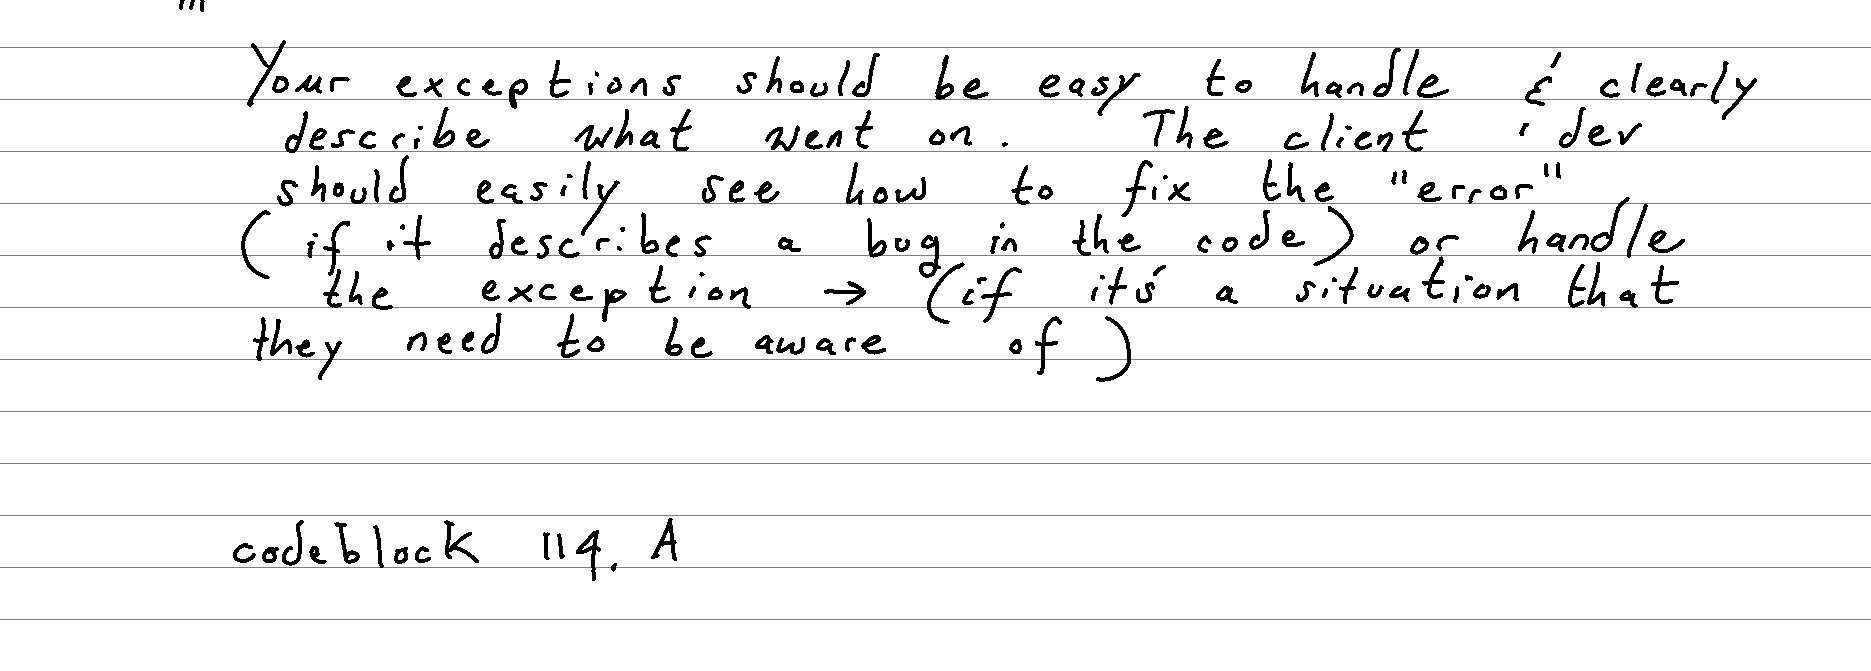 Your exceptions should be easy to handle & clearly
describe what went on. The client ' dev
should easily see how to fix the "error"
( if it describes a bug in the code) or handle
the exception → (if it's a situation that
they need to be aware of )
codeblock 114. A